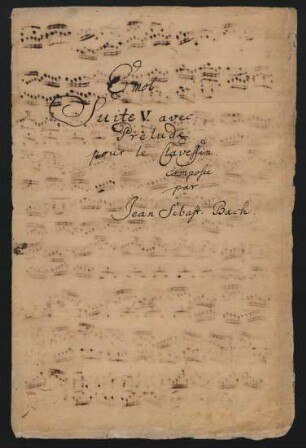 E mol.
Suite V. avec
Prelude
pour le Clavessin
composée
par
Jean Sebast. Bach.